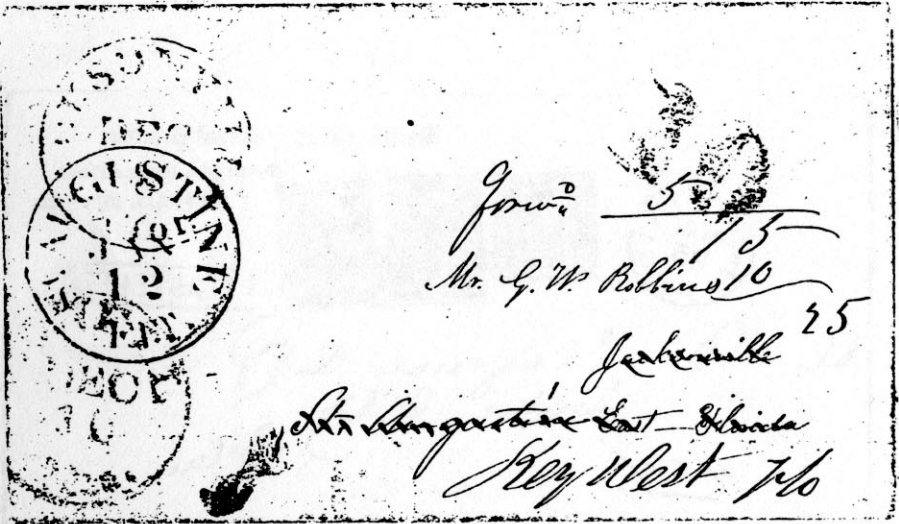 DEC
ST. AUGISTINE
JAN
12
DEC
16
5
15
Mr. G. W. Robbins 10
25
Jacksonville
St. Augustine East Florida
Key West Flo